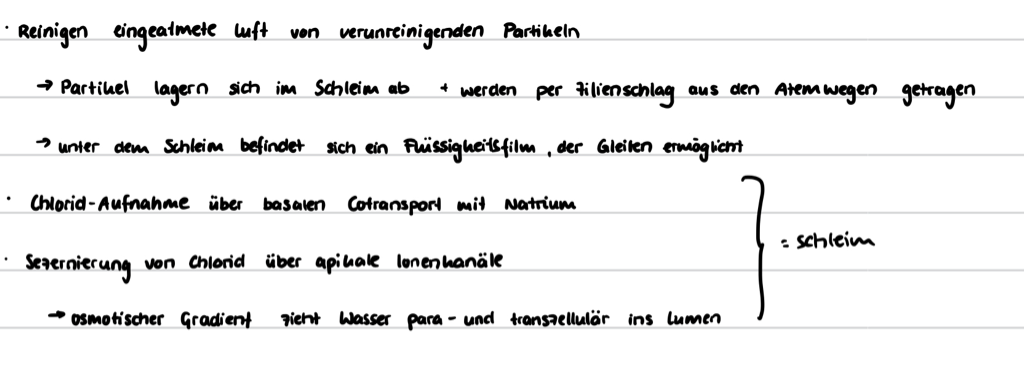 · Reinigen eingeatmete luft von verunreinigenden Partikeln
→ Partikel lagern sich im Schleim ab + werden per Zilienschlag aus den Atemwegen getragen
→ unter dem Schleim befindet sich ein Flüssigkeitsfilm, der Gleiten ermöglicht
· Chlorid-Aufnahme über basalen Cotransport mit Natrium
· Sezernierung von Chlorid über apikale Ionenkanäle
→ osmotischer Gradient zieht Wasser para- und transzellulär ins Lumen
= schleim